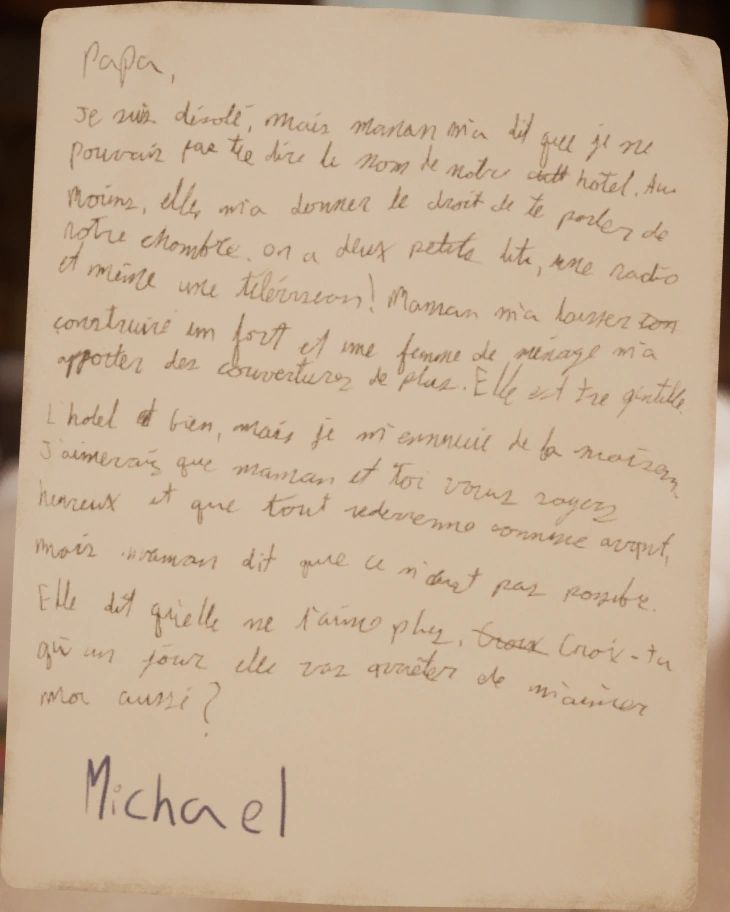 Papa,
Je suis désolé, mais maman m'a dit que je ne
pouvais pas te dire le nom de notre hotel. Au
moins, elle m'a donner le droit de te parler de
notre chambre. on a deux petits lits, une radio
et même une télévision! Maman m'a laisser
construire un fort et une femme de ménage m'a
apporter des couvertures de plus. Elle est tre gentille.
L'hotel est bien, mais je m'ennuie de la maison.
J'aimerais que maman et toi vous soyez
heureux et que tout redevienne comme avant,
mais maman dit que ce n'est pas possible.
Elle dit qu'elle ne t'aime plus. Croix Croix-tu
qu'un jour elle vas arrêter de m'aimer
moi aussi?
Michael